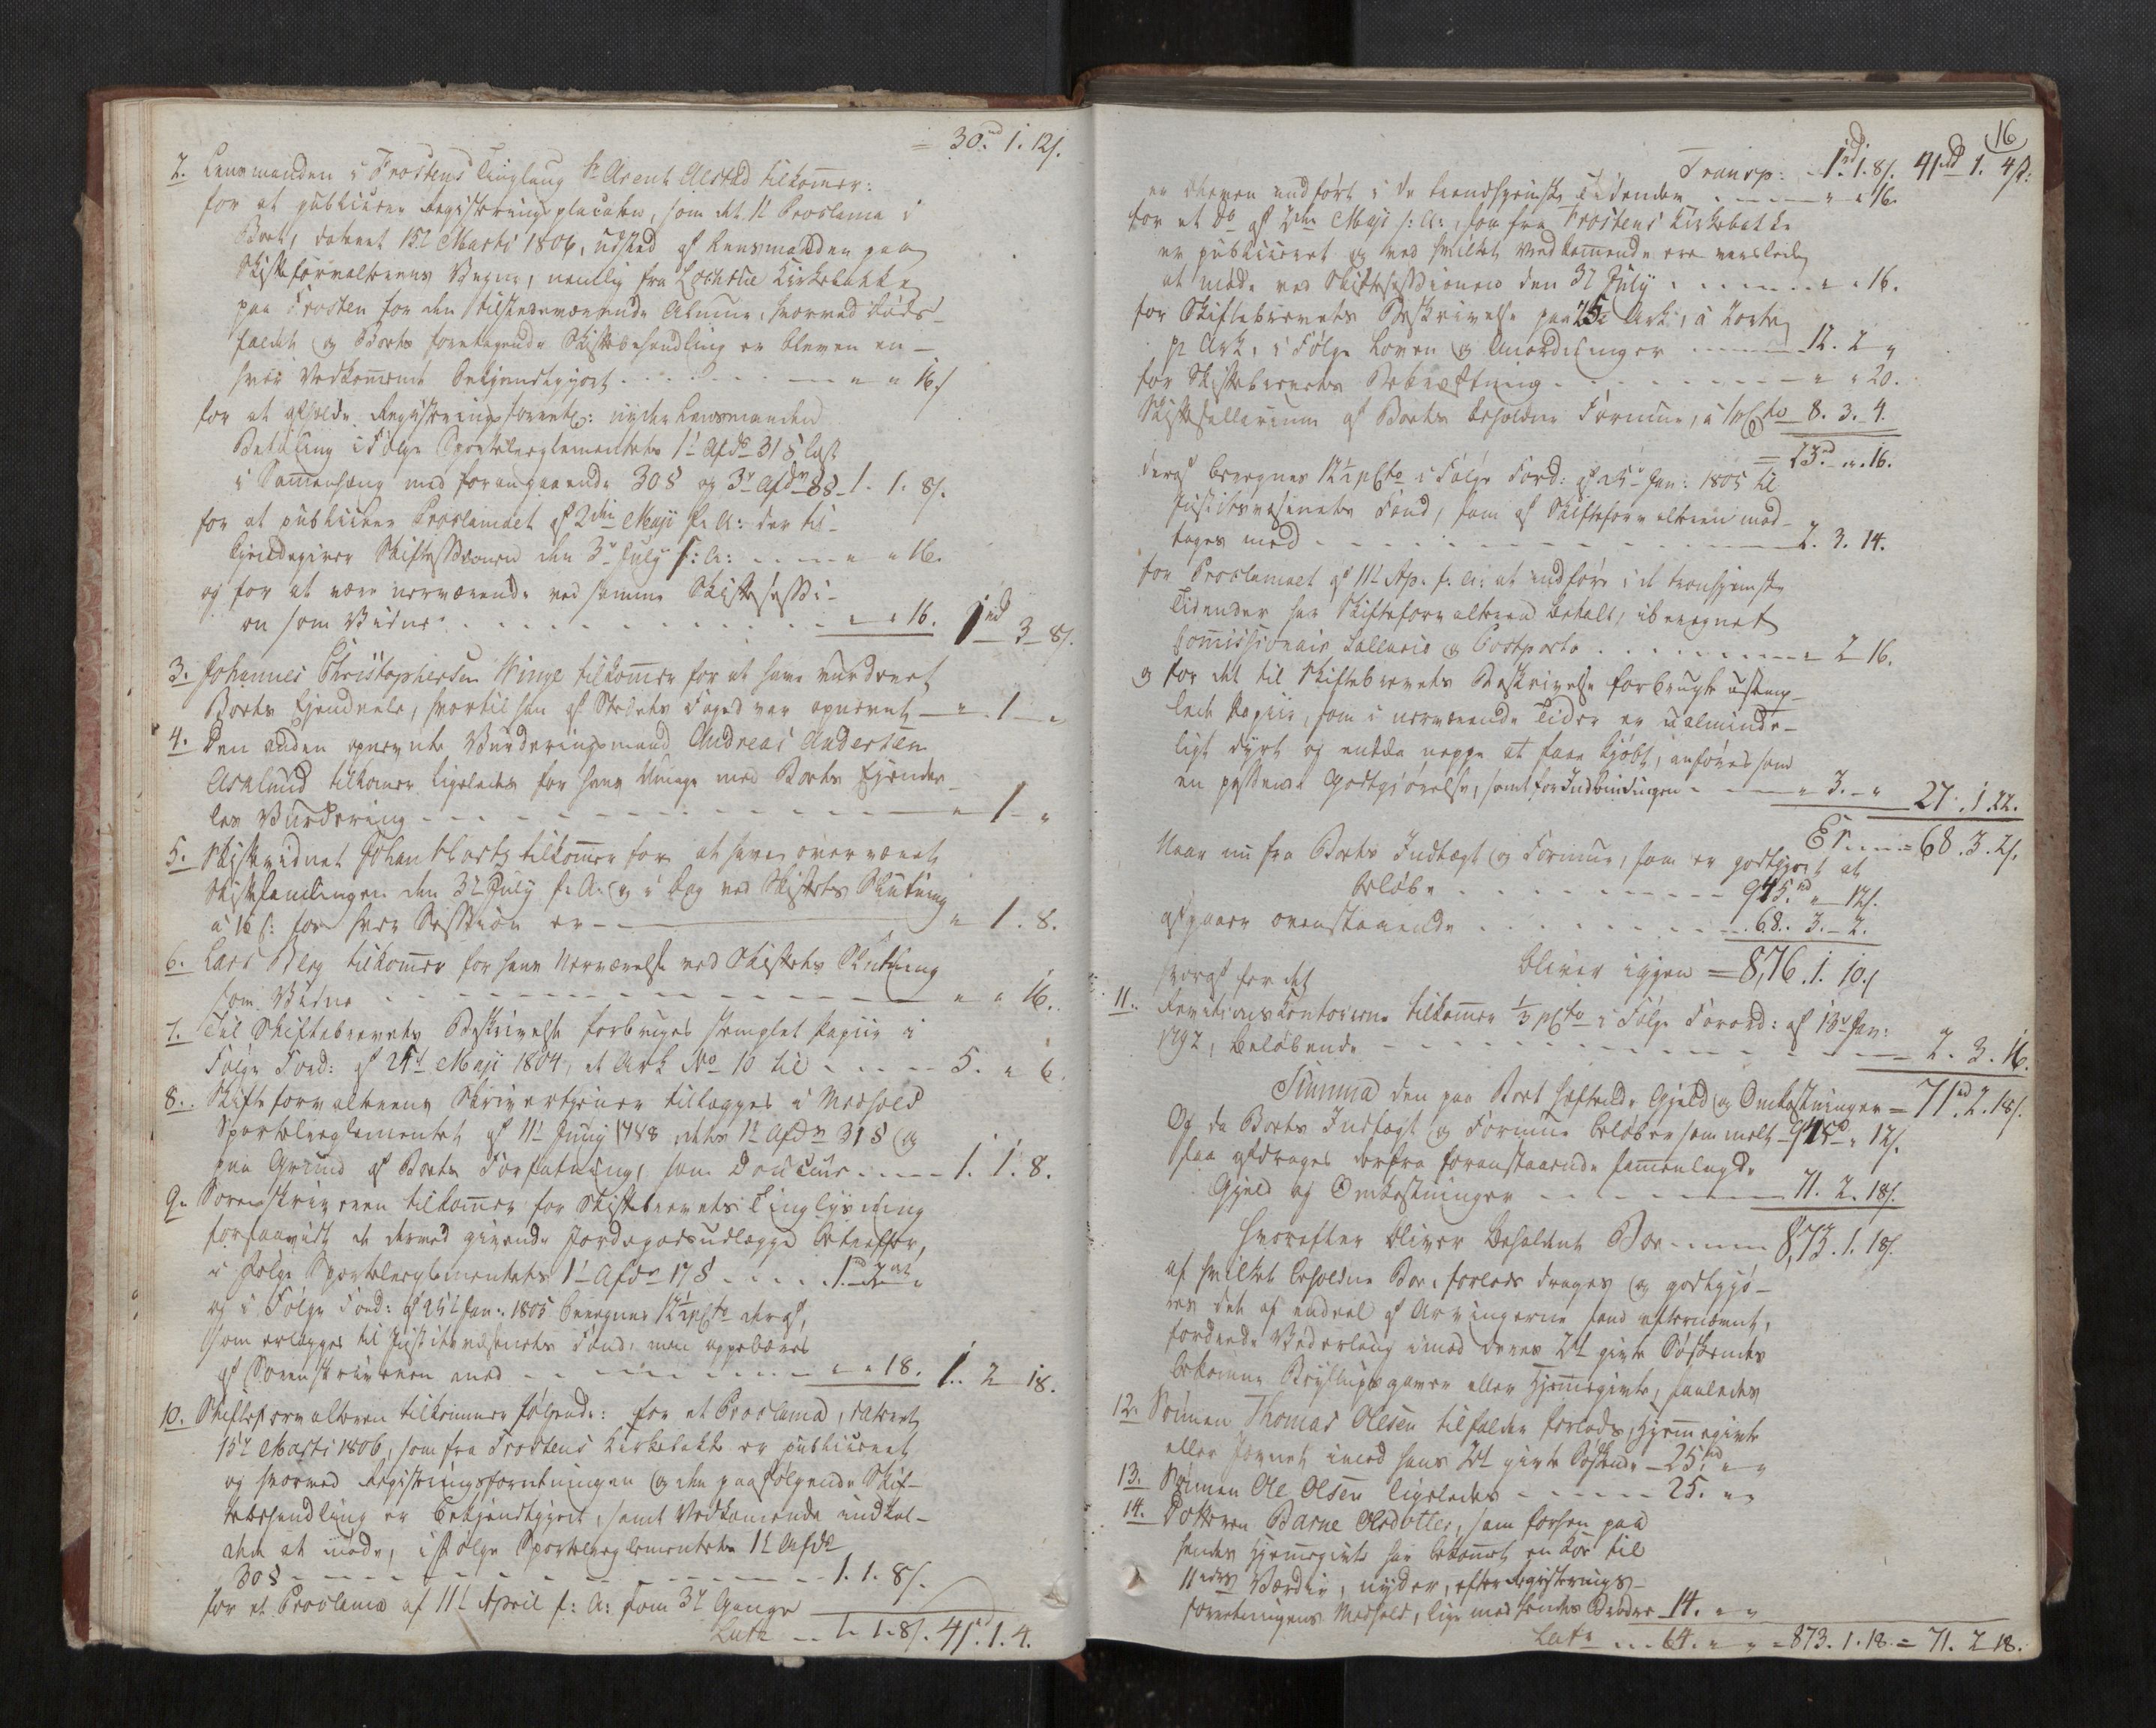 = 30rd 1. 12s.
2. Lensmanden i Frostens Tinglaug Sr Arent Alstad tilkommer:
for at publicere Registeringsplacaten, som det 1te Proclama i
Boet, dateret 15de Martii 1806, udsted af Lensmanden paa
Skifteforvalterens Vegne, nemlig fra Kirkebakke
paa Frosten for den tilstedeværende Almue, hvorved Døds-
faldet og Boets foretagende Skiftebehandling er bleven en-
hver Vedkommende bekjendtgjort . . . „ „ 16s
for at afholde Registeringsforretn: nyder Lensmanden
Betaling i Følge Sportelreglementets 1te Afd. 31 §
i Sammenhæng med foregaaende 30 § og 3de Afd. 8 § 1. 1. 8s.
for at publicere Proclamaet af 2den Maji f: A: der til-
kjendegiver Skiftessionen den 3de July f: A: . . „ „ 16.
og for at være nærværende ved samme Skiftesessi-
on som Vidne . . . „ „ 16. 1rd 3 8s.
3. Johannes Christophersen Winge tilkommer for at have vurderet
Boets Ejendeele, hvortil han af Stedets Foged var opnevnt — „ 1 — „
4. Den anden opnevnte Vurderingsmand Andreas Andersen
Asklund tilkommer ligeledes for hans Umage med Boets Ejendee-
les Vurdering — „ 1 — „
5. Skiftevidnet Johan Hartz tilkommer for at have overværet
Skiftesamlingen den 3de July f: A: og i Dag ved Skiftets Slutning
a 16 s: for hver Session er — „ 1. 8.
6. Lars Berg tilkommer for hans Nærværelse ved Skiftets Slutning
som Vidne — „ „ 16.
7. Til Skiftebrevets Beskrivelse forbruges stemplet Papiir i
Følge Ford: af 25de Maji 1804, et Ark No 10 til . . . 5. „ 6.
8. Skifteforvalterens Skrivertjener tillægges i Medhold
Sportelreglementet af 11te Juny 1788 dets 1te Afd. 31 § og
paa Grund af Boets Forfatning, som Douceur . . . 1. 1. 8.
9. Sorenskriveren tilkommer for Skiftebrevets Tinglysning
forsaavidt de dermed givende Jordegodsudlægge betræffer,
i Følge Sportelreglementets 1te Afd. 17 § . . . 1rd 2 „
og i Følge Ford: af 25de Jan: 1805 beregnes 12½ pCto deraf,
som erlægges til Justitsvæsenets Fond, men oppebæres
af Sorenskriveren med . . . „ „ 18. 1. 2 18.
10. Skifteforvalteren tilkommer følgende: for et Proclama, dateret
15de Martii 1806, som fra Frostens Kirkebakke er publiceret
og hvorved Registeringsforretningen og den paafølgende Skif-
tebehandling er bekjendtgjort, samt Vedkommende indkal-
dte at møde, i Følge Sportelreglementets 1te Afd.
30 § . . . 1. 1. 8s.
for et Proclama af 11te April f: A: som 3de Gange
Late . . 1. 1. 8s. 41rd. 1. 4.
16
Transp: 1rd. 1. 8s. 41rd 1. 4s:
er bleven indført i de trondhjemske Tidender . . . „ „ 16.
for et do af 2den Maji f: A:, som fra Frostens Kirkebakke
er publiceret og ved hvilket Vedkommende ere varslede
at møde ved Skiftesessionen den 3de July . . . „ „ 16.
for Skiftebrevets Beskrivelse paa 25 Ark, a 2 orter
pr Ark, i Følge Loven og Anordninger . . . 12. 2 „
for Skiftebrevets Bekræftning . . . „ „ 20.
Skiftesallarium af Boets beholdne Formue, a 1 pCto 8. 3. 4.
= 23rd „ 16.
deraf beregnes 12½ pCto i Følge Ford: af 25de Jan: 1805 til
Justitsvæsenets Fond, som af Skifteforvalteren mod-
tages med . . . 2. 3. 14.
for Proclamaet af 11te Ap. f. A: at indføre i de tronhjemske
Tidender har Skifteforvalteren betalt, iberegnet
Commissionair Sallario og Postporto . . . „ 2 16.
og for det til Skiftebrevets Beskrivelse forbrugte ustemp-
lede Papiir, som i nærværende Tider er ualminde-
ligt dyrt og endda neppe at faae kjøbt, anføres som
en passende Godtgjørelse, samt for Indbindingen . . . „ 3. „ 27. 1 22.
Er . . . = 68. 3. 2s.
Naar nu fra Boets Indtægt og Formue, som er godtgjort at
beløbe . . . 945rd. „ 12s.
afgaaer ovenstaaende . . . 68. 3. 2.
bliver igjen = 876. 1. 10s
hvoraf for det
11. Revisionskontoirerne tilkommer ⅓ pCto i Følge Forord: af 13de Jan:
1792, beløbende . . . 2. 3. 16.
Summa den paa Boet heftende Gjeld og Omkostninger = 71rd. 2. 18s.
Og da Boets Indtægt og Formue beløber som melt 945rd „ 12s.
saa afdrages derfra foranstaaende sammenlagde
Gjeld og Omkostninger . . . 71. 2. 18s.
hvorefter bliver beholden Boe . . . 873. 1. 18s.
af hvilket beholdne Boe, forlods drages og godtgjø-
res det af endeel af Arvingerne
fordrede Vederlag imod deres givte Sødskendes
bekomne Bryllupsgaver eller Hjemmegivte, saaledes
12. Sønnen Thomas Olsen tilfalder forlods, Hjemmegivte
eller Jævnet imod hans givte Sødskende 25rd „ „
13. Sønnen Ole Olsen ligeledes . . . 25. „ „
14. Dotteren Barne Olsdotter, som forhen paa
hendes Hjemmegivte har bekommet en Koe til
11rd Værdie, nyder, efter Registerings-
forretningens Medhold, lige med hendes Brødre 14. „ „
Late . . . 64. „ „ = 873. 1. 18. = 71. 2 18.